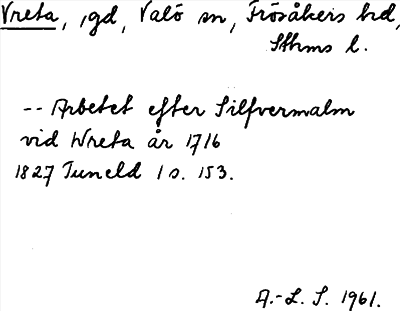 Vreta, gd, Valö sn, Frösåkers hd,
Sthms l.
-- Arbetet efter Silfvermalm
vid Wreta år 1716
1827 Tuneld 1 s. 153.
A.-L. S. 1961.